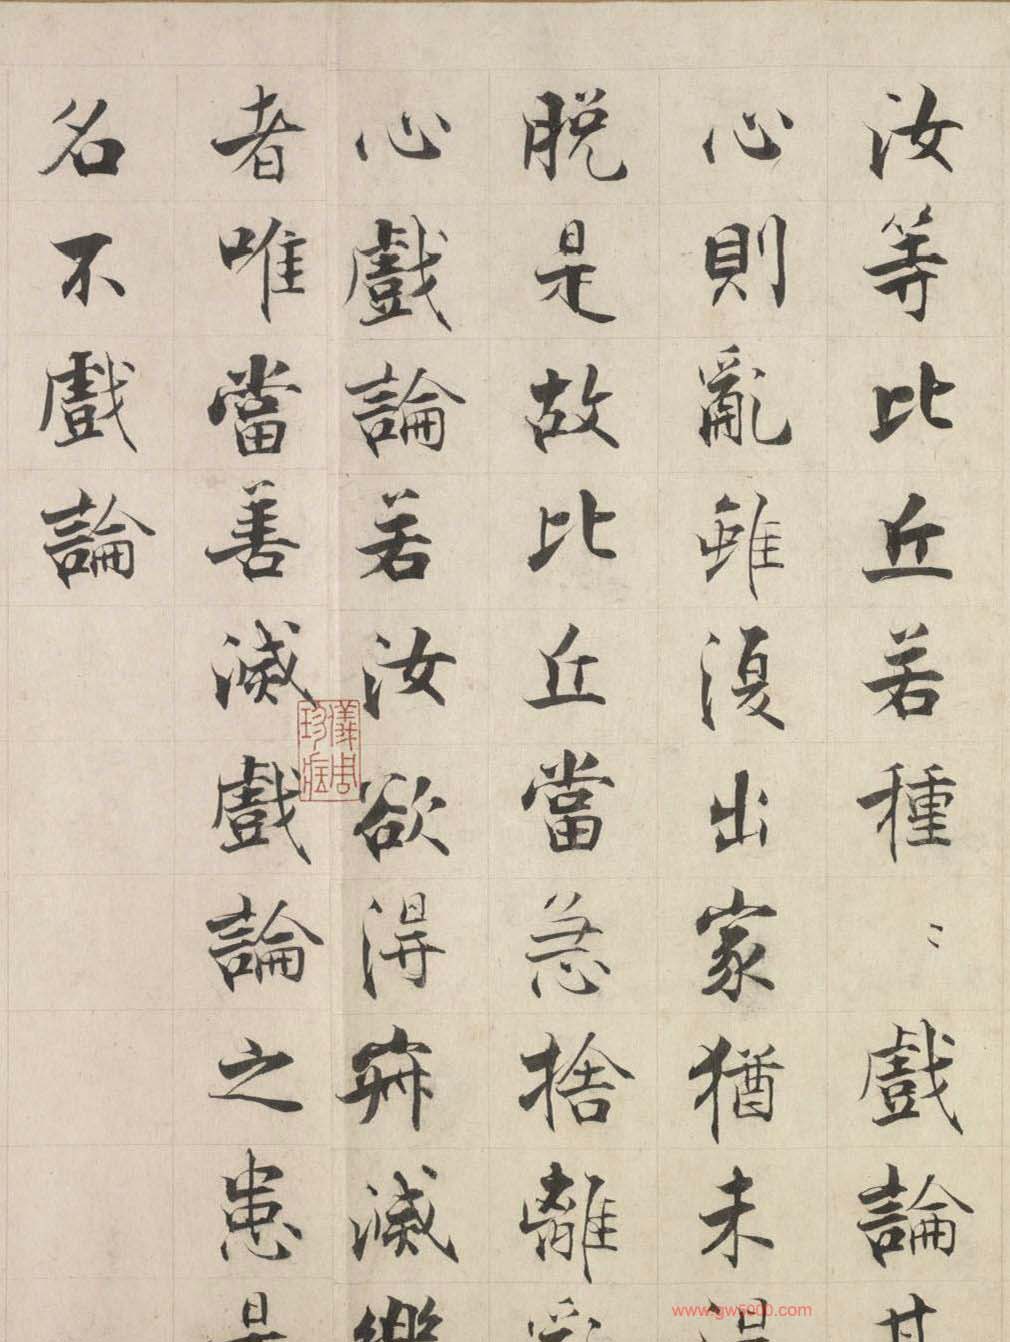 汝等比丘若種〻戲論其
心則亂雖復出家猶未得
脫是故比丘當急捨離亂
心戲論若汝欲得寂滅樂
者唯當善滅戲論之患是
名不戲論
儀周珍藏
www.gw5000.com